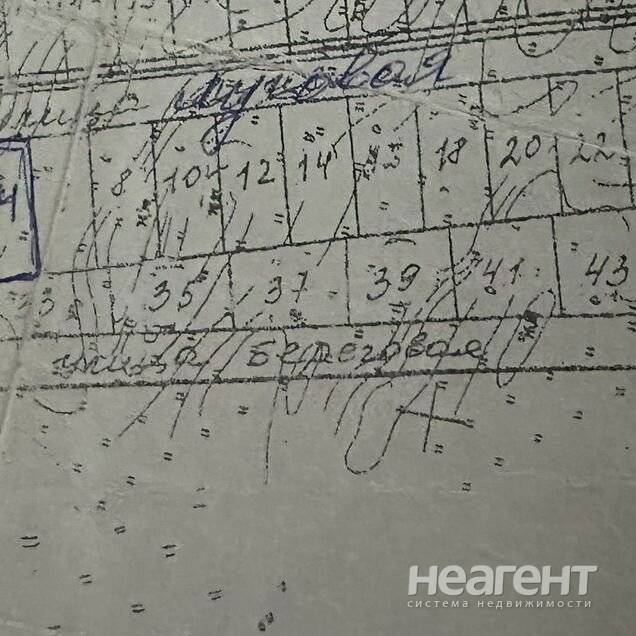 Луговая
8 10 12 14 18 20 22
33 35 37 39 41 43
улица Береговая
НЕАГЕНТ
система недвижимости